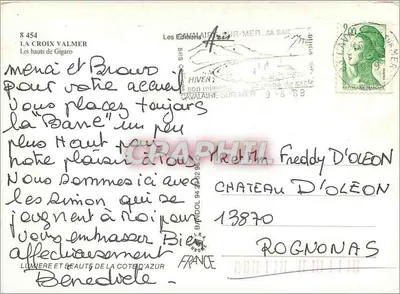 8 454
LA CROIX VALMER
Les hauts de Gigaro
Les Editions
CAVALAIRE-SUR-MER SA BAIE
HIVER
CAVALAIRE-SUR-MER 9-6-88
2,00
merci et Bravo
pour votre accueil
Vous placez toujours
la "Barre" un peu
plus Haut pour
notre plaisir à Tous
Nous sommes ici avec
les Simon qui se
joignent à Moi pour
vous embrasser Bien
affectueusement
Bénédicte -
GRAPHTI.COM
Mr et Mme Freddy D'OLEON
CHATEAU D'OLEON
13870
ROGNONAS
FRANCE
LUMIERE ET BEAUTE DE LA COTE D'AZUR